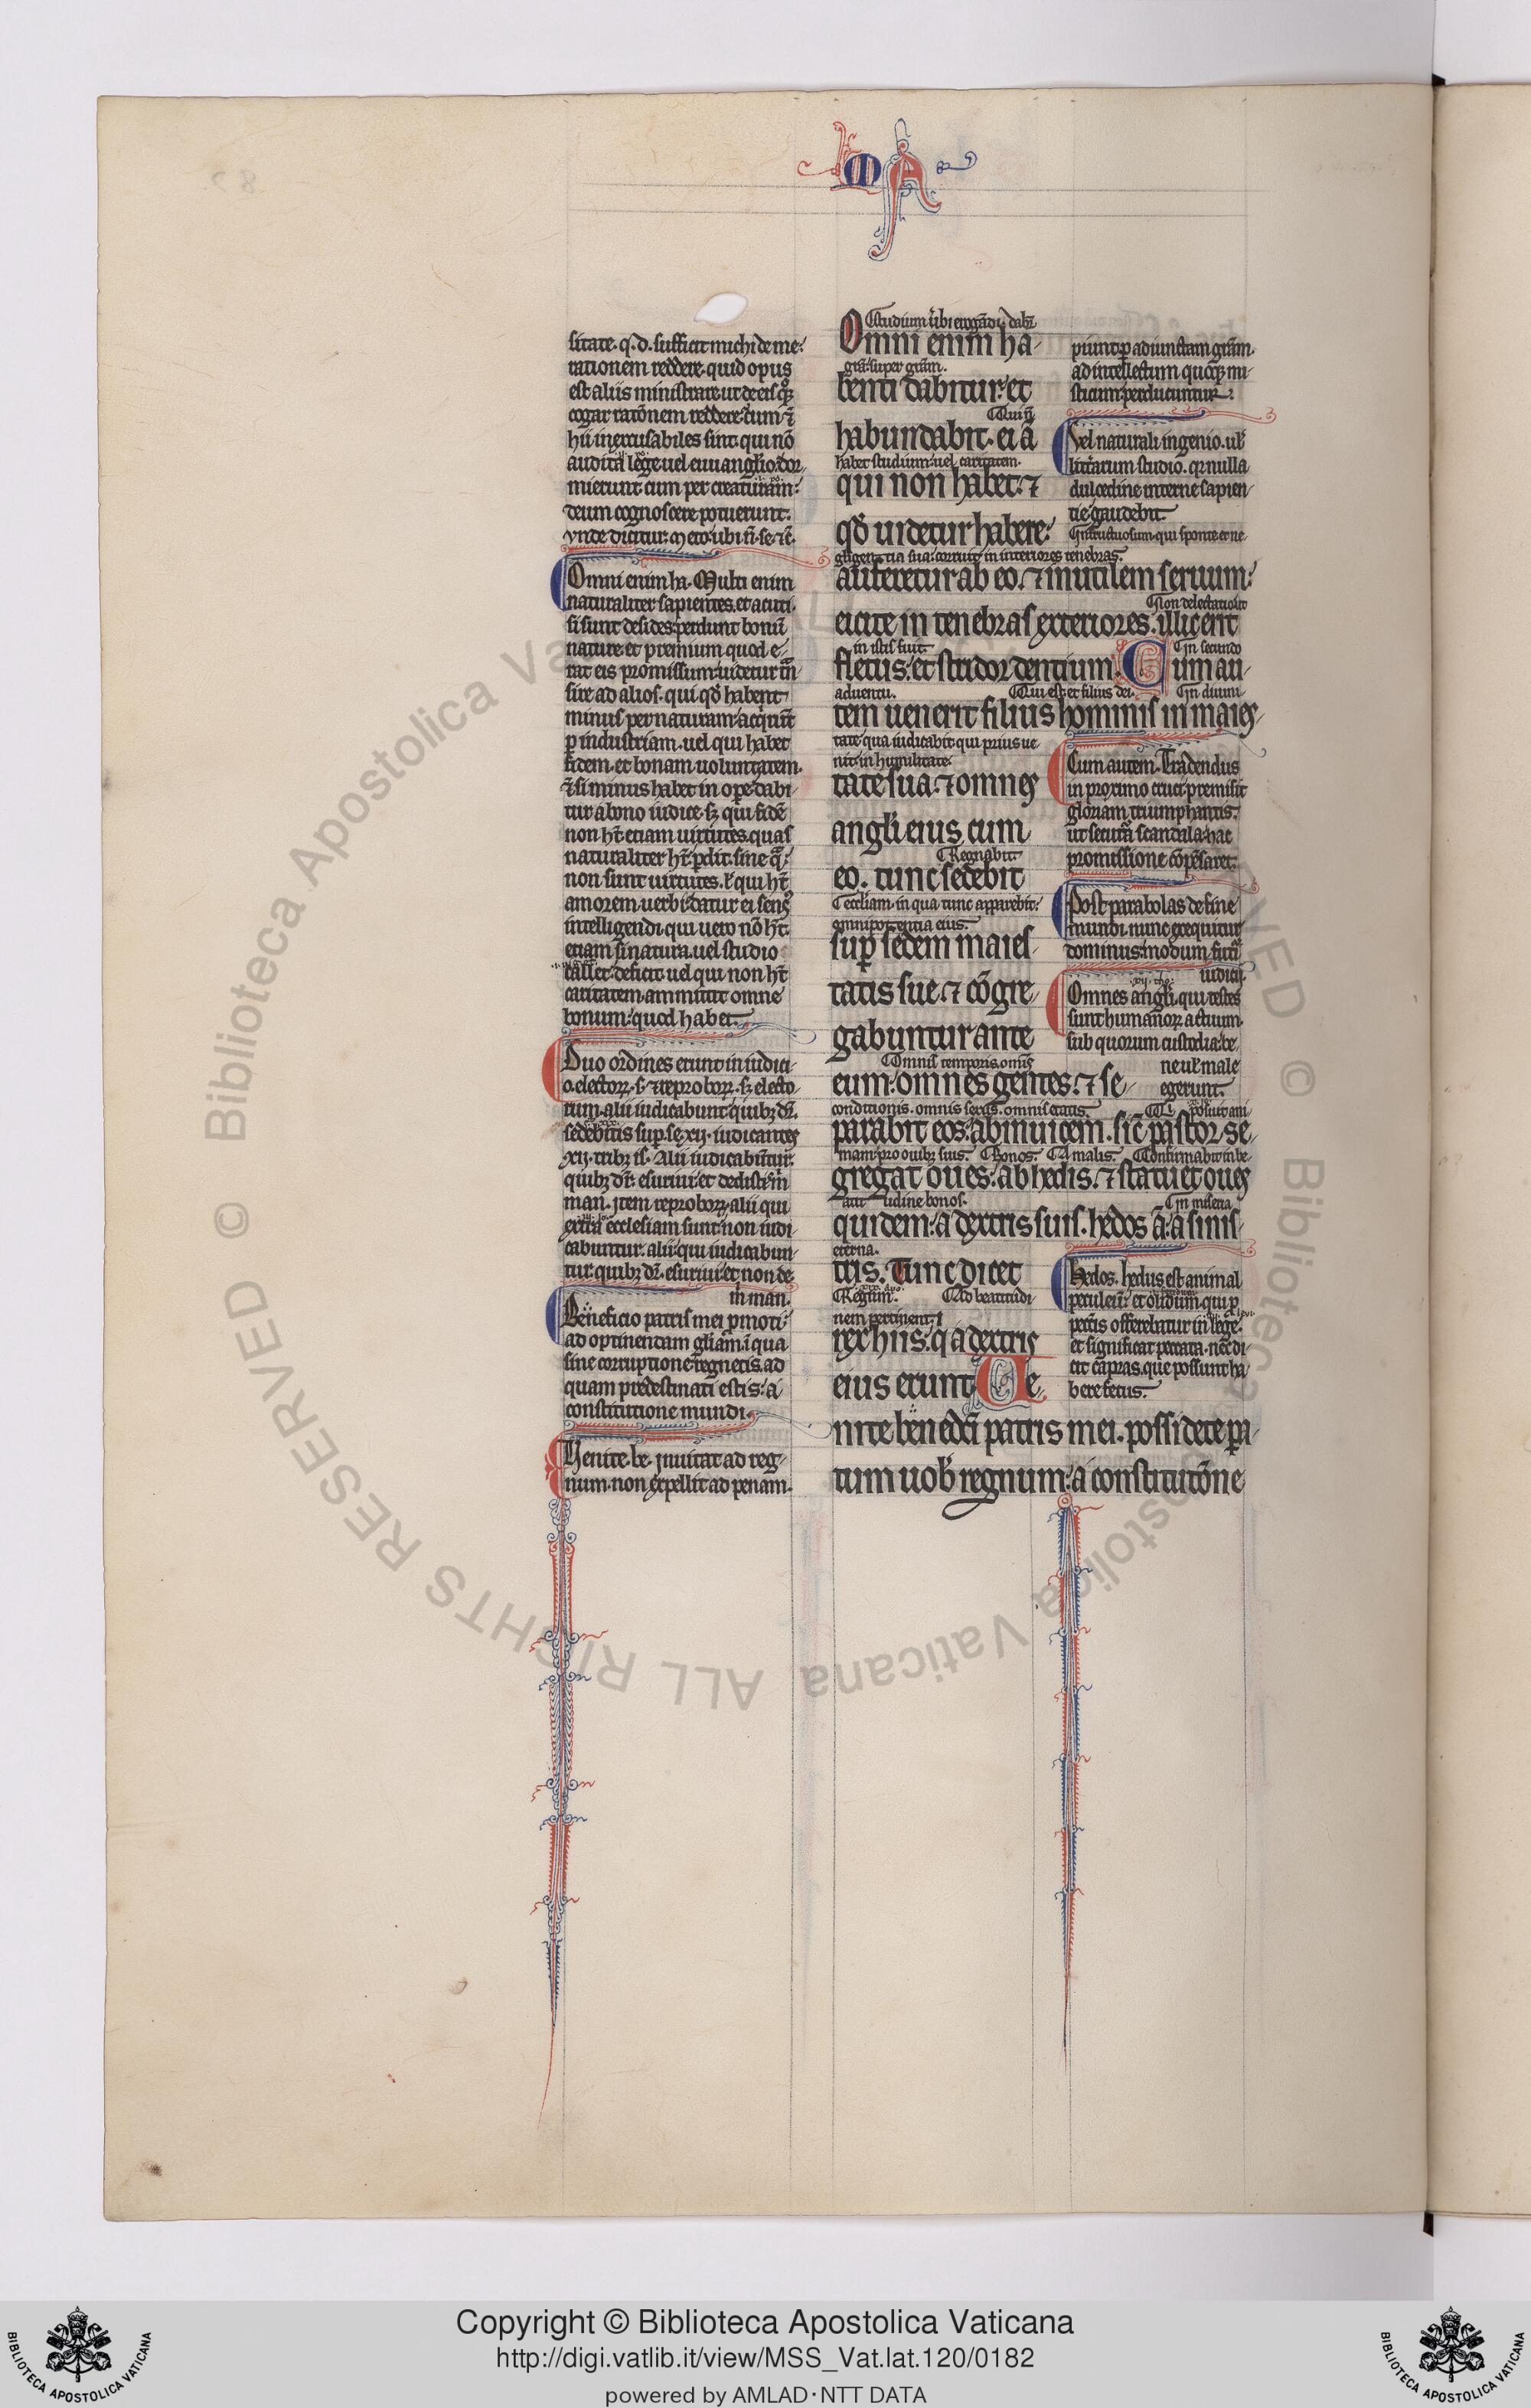 MA
sitate. q. d. sufficit michi de me
rationem reddere. quid opus
est aliis ministrare ut de eis qoqȝ
cogar ratōnem reddere. cum
hii inexcusabiles sint. qui nō
audita lege uel euuanglio dor
mierunt cum per creaturam
deum cognoscere potuerunt.
vnde dicitur. meto ubi n̄ se. ⁊c̄.
Omni enim ha. Multi enim
naturaliter sapientes. et acuti.
si sunt desides perdunt bonū
nature et premium quod e
rat eis promissum uidetur
ire ad alios. qui qd̄ habent
minus per naturam acqrunt
ꝑ industriam. uel qui habet
fidem. et bonam uoluntatem.
⁊ si minus habet in oꝑe dabi
tur a bono iudice. sȝ qui fidē
non hꝫ etiam uirtutes quas
naturaliter hꝫ ꝑdit. sine q̄
non sunt uirtutes. ł qui hꝫ
amorem uerbi datur ei sensꝰ
intelligendi qui uero nō hꝫ.
etiam si natura. uel studio
callet. deficit uel qui non hꝫ
caritatem ammittit omne
bonum quod habet.
Duo ordines erunt in iudici
o. electoꝝ. s. ⁊ reproboꝝ. sȝ electo
rum. alii iudicabunt quibȝ dr̄.
sedebitis suꝑ se. xij. iudicantes
xij. tribȝ isl. Alii iudicabūtur.
quibȝ dr̄. esuriui et dedistis m
man. item reproboꝝ alii qui
extra ecclesiam sunt non iudi
cabuntur. alii qui iudicabun
tur. quibȝ dr̄. esuriui et non de
m man.
Beneficio patris mei ꝓmoti
ad optinendam gl̄iam. i qua
sine corruptione regnetis. ad
quam predestinati estis. a
constitutione mundi.
Venite. be. inuitat ad reg
num. non expellit ad penam.
Studium ubi erogādi. dabr̄
Omni enim ha
gra. super gr̄am.
benti dabitur. et
Qui n̄
habundabit. ei ā
habet studium uel caritatem.
qui non habet. ⁊
qd̄ uidetur habere.
gligentia sua. corruit in interiores tenebras.
auferetur ab eo. ⁊ inutilem seruum
Non delectatio ut
eicite in tenebras exteriores. illic erit
in istis fuit
In secundo
fletus. et stridor dentium. Cum au
aduentu.
Qui est et filius dei.
In diuini
tem uenerit filius hominis in maies
tate qua iudicabit qui prius ue
nit in humilitate.
tate sua. ⁊ omnes
angl̄i eius cum
Regnabit
eo. tunc sedebit
eccl̄iam. in qua tunc apparebit
omnipotentia eius.
suꝑ sedem maies
tatis sue. ⁊ cōgre
gabuntur ante
Omnis temporis. omis
eum. omnes gentes. ⁊ se
conditionis. omnis sexꝰ. omnis etatis.
posuit ani
parabit eos. ab inuicem. sic̄ pastor se
mam pro ouibȝ suis. Bonos. A malis. Confirmabit in be
gregat oues. ab hedis. ⁊ statuet oues
atitudine bonos.
In miseria
quidem. a dextris suis. hedos ā. a sinis
eterna.
tris. Tunc dicet
Regum.
Ad beatitudi
nem pertinent.
rex hiis. q a dextris
eius erunt Ue
nite bened̄ patris mei. possidete pa
tum uob̄ regnum. a constitutōne
piunt ꝑ adiunctam gr̄am.
ad intellectum quoqȝ mi
sticum perducuntur.
Vel naturali ingenio. ul̄
litterarum studio. qr nulla
dulcedine interne sapien
tie gaudebit
Infructuosum. qui sponte et ne
Cum autem. Tradendus
in proximo cruci premisit
gloriam triumphantis.
ut secutura scandala. hac
promissione cōpēsaret.
Post parabolas de fine
mundi. nunc exequitur
dominus. modum futuri
iudicij.
Omnes angl̄i. qui testes
sunt humanoꝝ actuum.
sub quorum custodia. be
ne ul̄ male
egerunt.
Hedos. hedus est animal
petulcū. et olidum. qui ꝓ
peccatis offerebatur in lege.
et significat peccata. nec di
cit capras. que possunt ha
bere fetus.
Copyright © Biblioteca Apostolica Vaticana
http://digi.vatlib.it/view/MSS_Vat.lat.120/0182
powered by AMLAD·NTT DATA
BIBLIOTECA APOSTOLICA VATICANA
BIBLIOTECA APOSTOLICA VATICANA
© Biblioteca Apostolica Vaticana ALL RIGHTS RESERVED